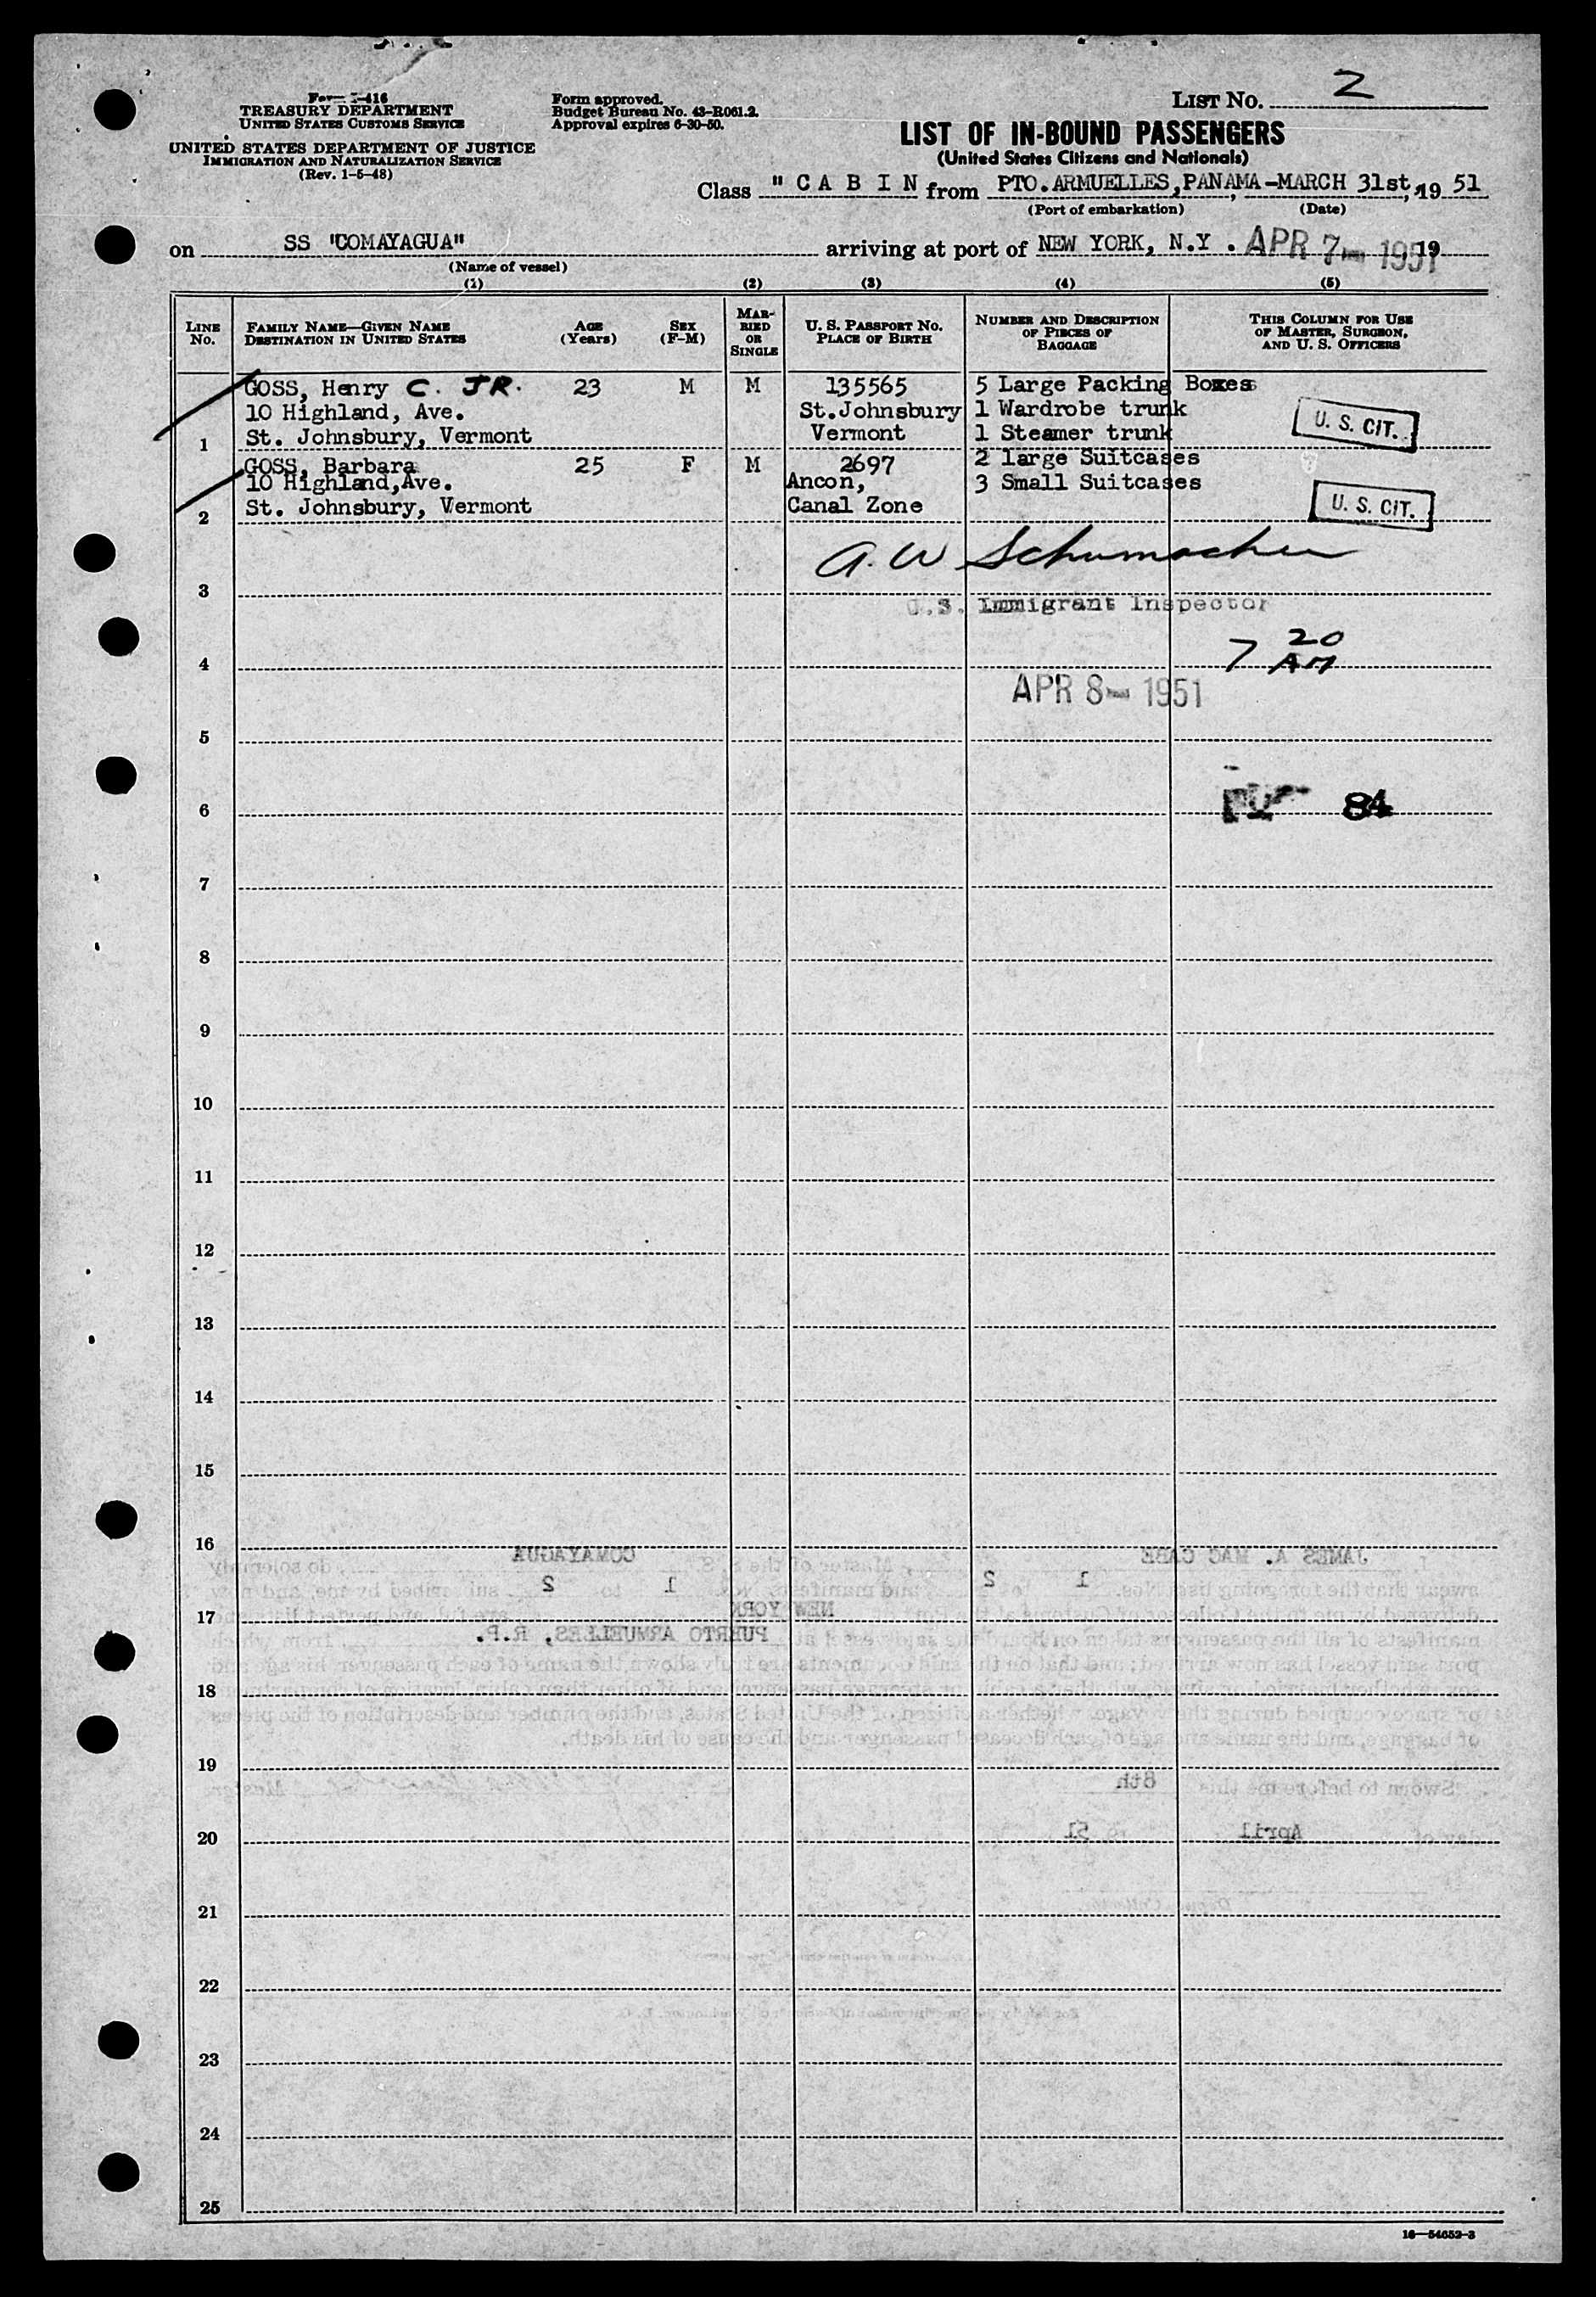 Form I-416
TREASURY DEPARTMENT
UNITED STATES CUSTOMS SERVICE
UNITED STATES DEPARTMENT OF JUSTICE
IMMIGRATION AND NATURALIZATION SERVICE
(Rev. 1-5-48)
Form approved.
Budget Bureau No. 43-R061.2.
Approval expires 6-30-50.
LIST NO. 2
LIST OF IN-BOUND PASSENGERS
(United States Citizens and Nationals)
Class "CABIN from PTO.ARMUELLES,PANAMA-MARCH 31st,1951
(Port of embarkation) (Date)
on SS "COMAYAGUA" arriving at port of NEW YORK, N.Y. APR 7- 1951, 19
(Name of vessel)
(1) (2) (3) (4) (5)
LINE NO.
FAMILY NAME—GIVEN NAME
DESTINATION IN UNITED STATES
AGE
(Years)
SEX
(F-M)
MARRIED
OR
SINGLE
U. S. PASSPORT NO.
PLACE OF BIRTH
NUMBER AND DESCRIPTION
OF PIECES OF
BAGGAGE
THIS COLUMN FOR USE
OF MASTER, SURGEON,
AND U. S. OFFICERS
GOSS, Henry C. JR. 23 M M 135565 5 Large Packing Boxes
10 Highland, Ave. St.Johnsbury 1 Wardrobe trunk
1 St. Johnsbury, Vermont Vermont 1 Steamer trunk U. S. CIT.
GOSS, Barbara 25 F M 2697 2 large Suitcases
10 Highland,Ave. Ancon, 3 Small Suitcases
2 St. Johnsbury, Vermont Canal Zone U. S. CIT.
A. W. Schumacher
3
U.S. Immigrant Inspector
7 20 AM
4
APR 8- 1951
5
6 84
7
8
9
10
11
12
13
14
15
16
COMAYAGUA JAMES A. MAC CABE
1 2 1 2
17 NEW YORK
PUERTO ARMUELLES, R.P.
18
19
8th
20 April 51
21
22
23
24
25
16—54652-3